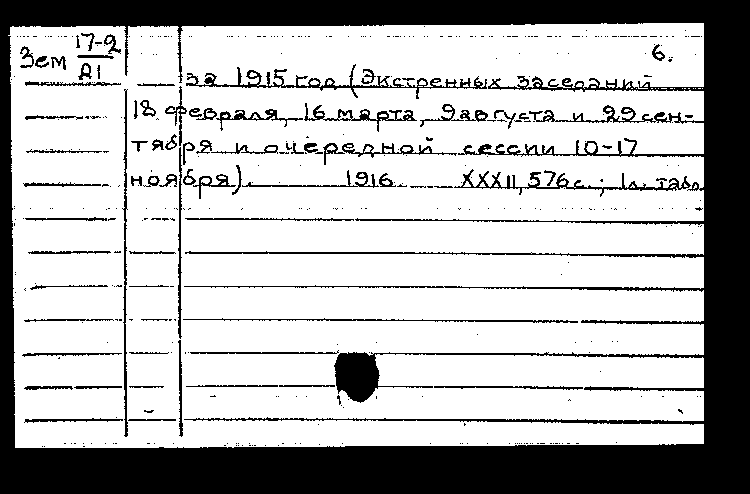 6.
Зем 17-2
Д1
за 1915 год (Экстренных заседаний
18 февраля, 16 марта, 9 августа и 29 сен-
тября и очередной сессии 10-17
ноября). 1916. XXXII, 576 с.; 1 л. табл